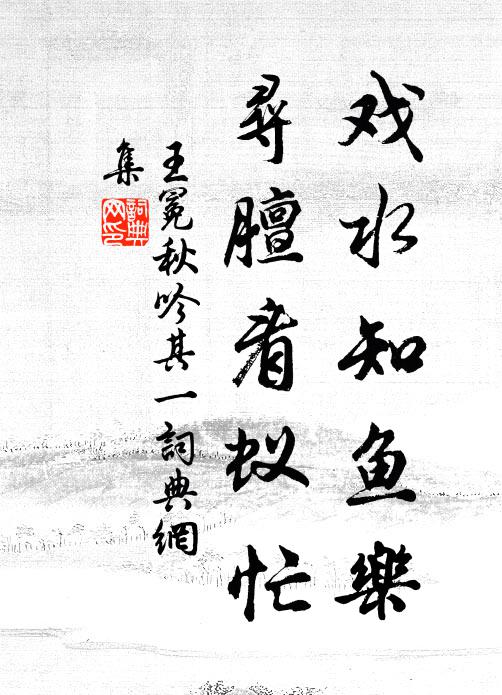 戏水知鱼樂
尋膻看蚁忙
王冕秋吟其一詞典網
集
詞典
网印